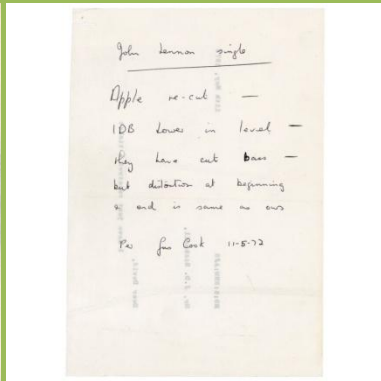 John Lennon single
Apple re-cut —
1DB Lower in level —
they have cut bass —
but distortion at beginning
& end is same as ours
Per Gus Cook 11-5-72